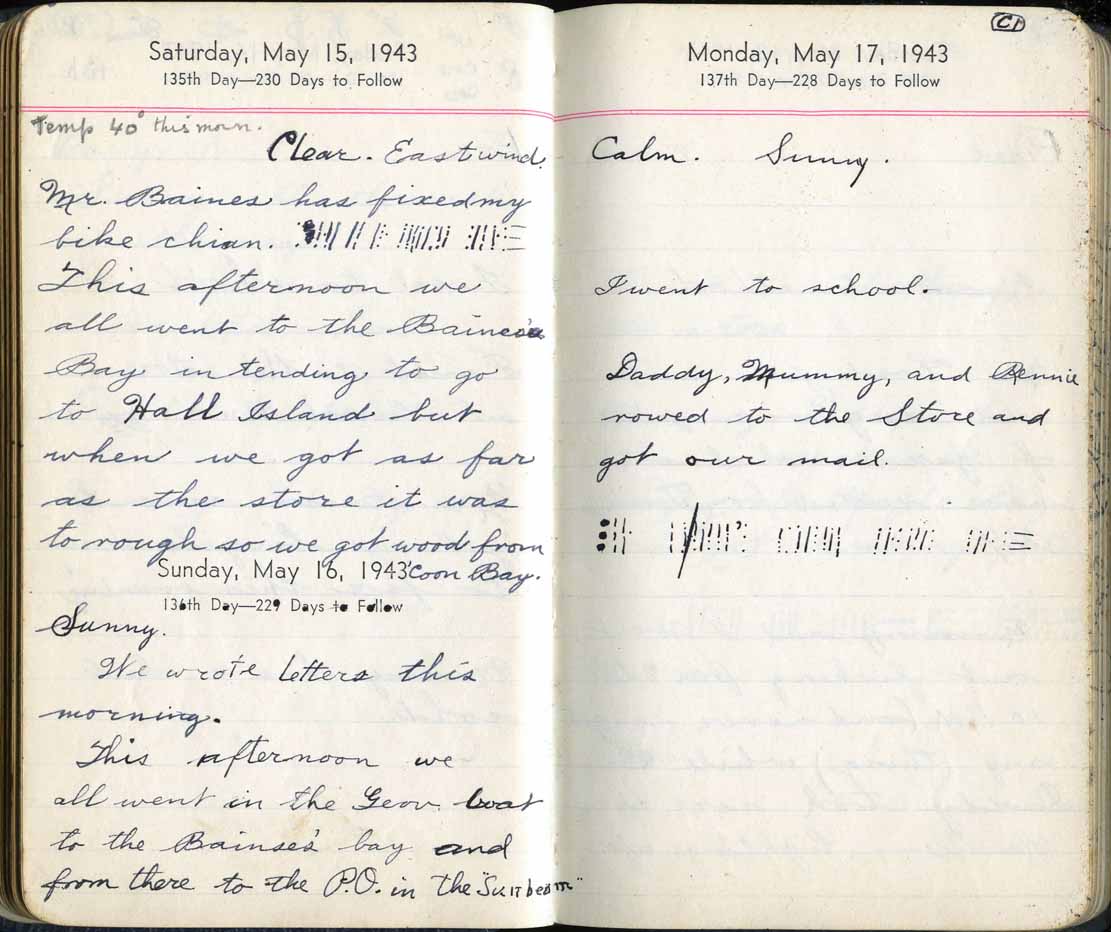 Saturday, May 15, 1943
135th Day—230 Days to Follow
Temp 40° this morn.
Clear. East wind.
Mr. Baines has fixed my
bike chian.
This afternoon we
all went to the Baines's
Bay intending to go
to Hall Island but
when we got as far
as the store it was
to rough so we got wood from
Coon Bay.
Sunday, May 16, 1943
136th Day—229 Days to Follow
Sunny.
We wrote letters this
morning.
This afternoon we
all went in the Geov boat
to the Bainse's bay and
from there to the P.O. in the "Sunbeam"
C1
Monday, May 17, 1943
137th Day—228 Days to Follow
Calm. Sunny.
I went to school.
Daddy, Mummy, and Rennie
rowed to the Store and
got our mail.